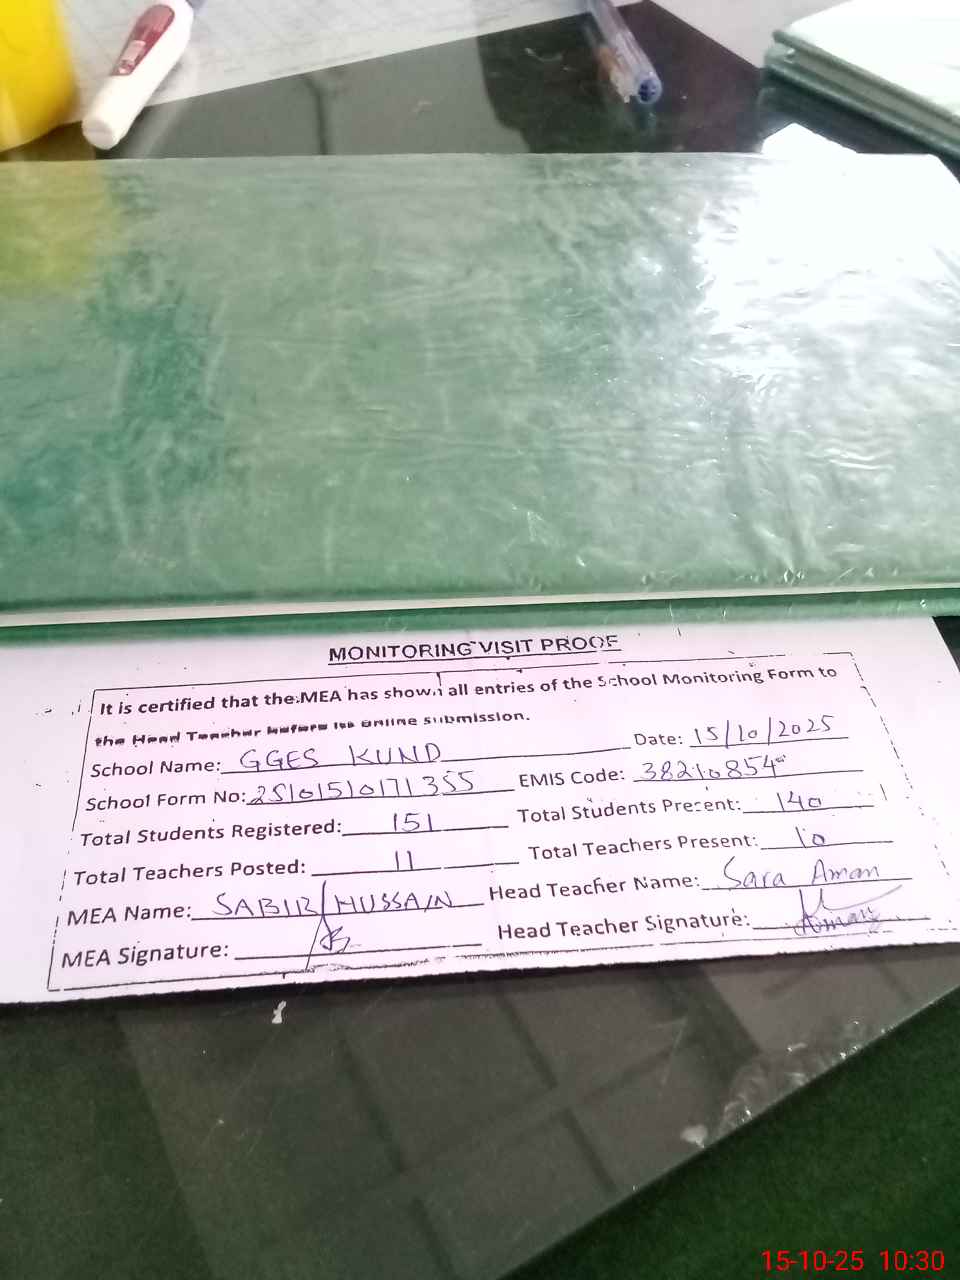 MONITORING VISIT PROOF
It is certified that the MEA has shown all entries of the School Monitoring Form to
the Head Teacher before its online submission.
School Name: GGES KUND Date: 15/10/2025
School Form No: 25101510171355 EMIS Code: 38210854
Total Students Registered: 151 Total Students Present: 140
Total Teachers Posted: 11 Total Teachers Present: 10
MEA Name: SABIR HUSSAIN Head Teacher Name: Sara Aman
MEA Signature: Head Teacher Signature: Aman
15-10-25 10:30